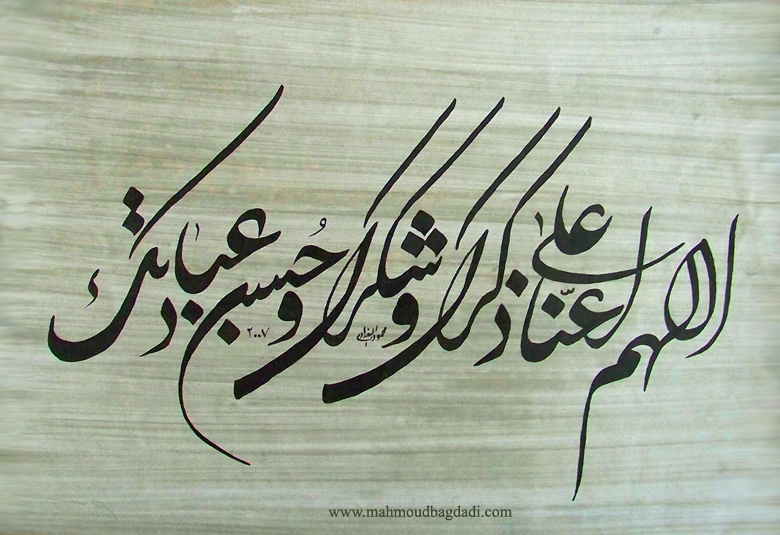 اللهم اعنّا على ذكرك وشكرك وحُسن عبادتك
محمود البغدادي
٢٠٠٧
www.mahmoudbagdadi.com